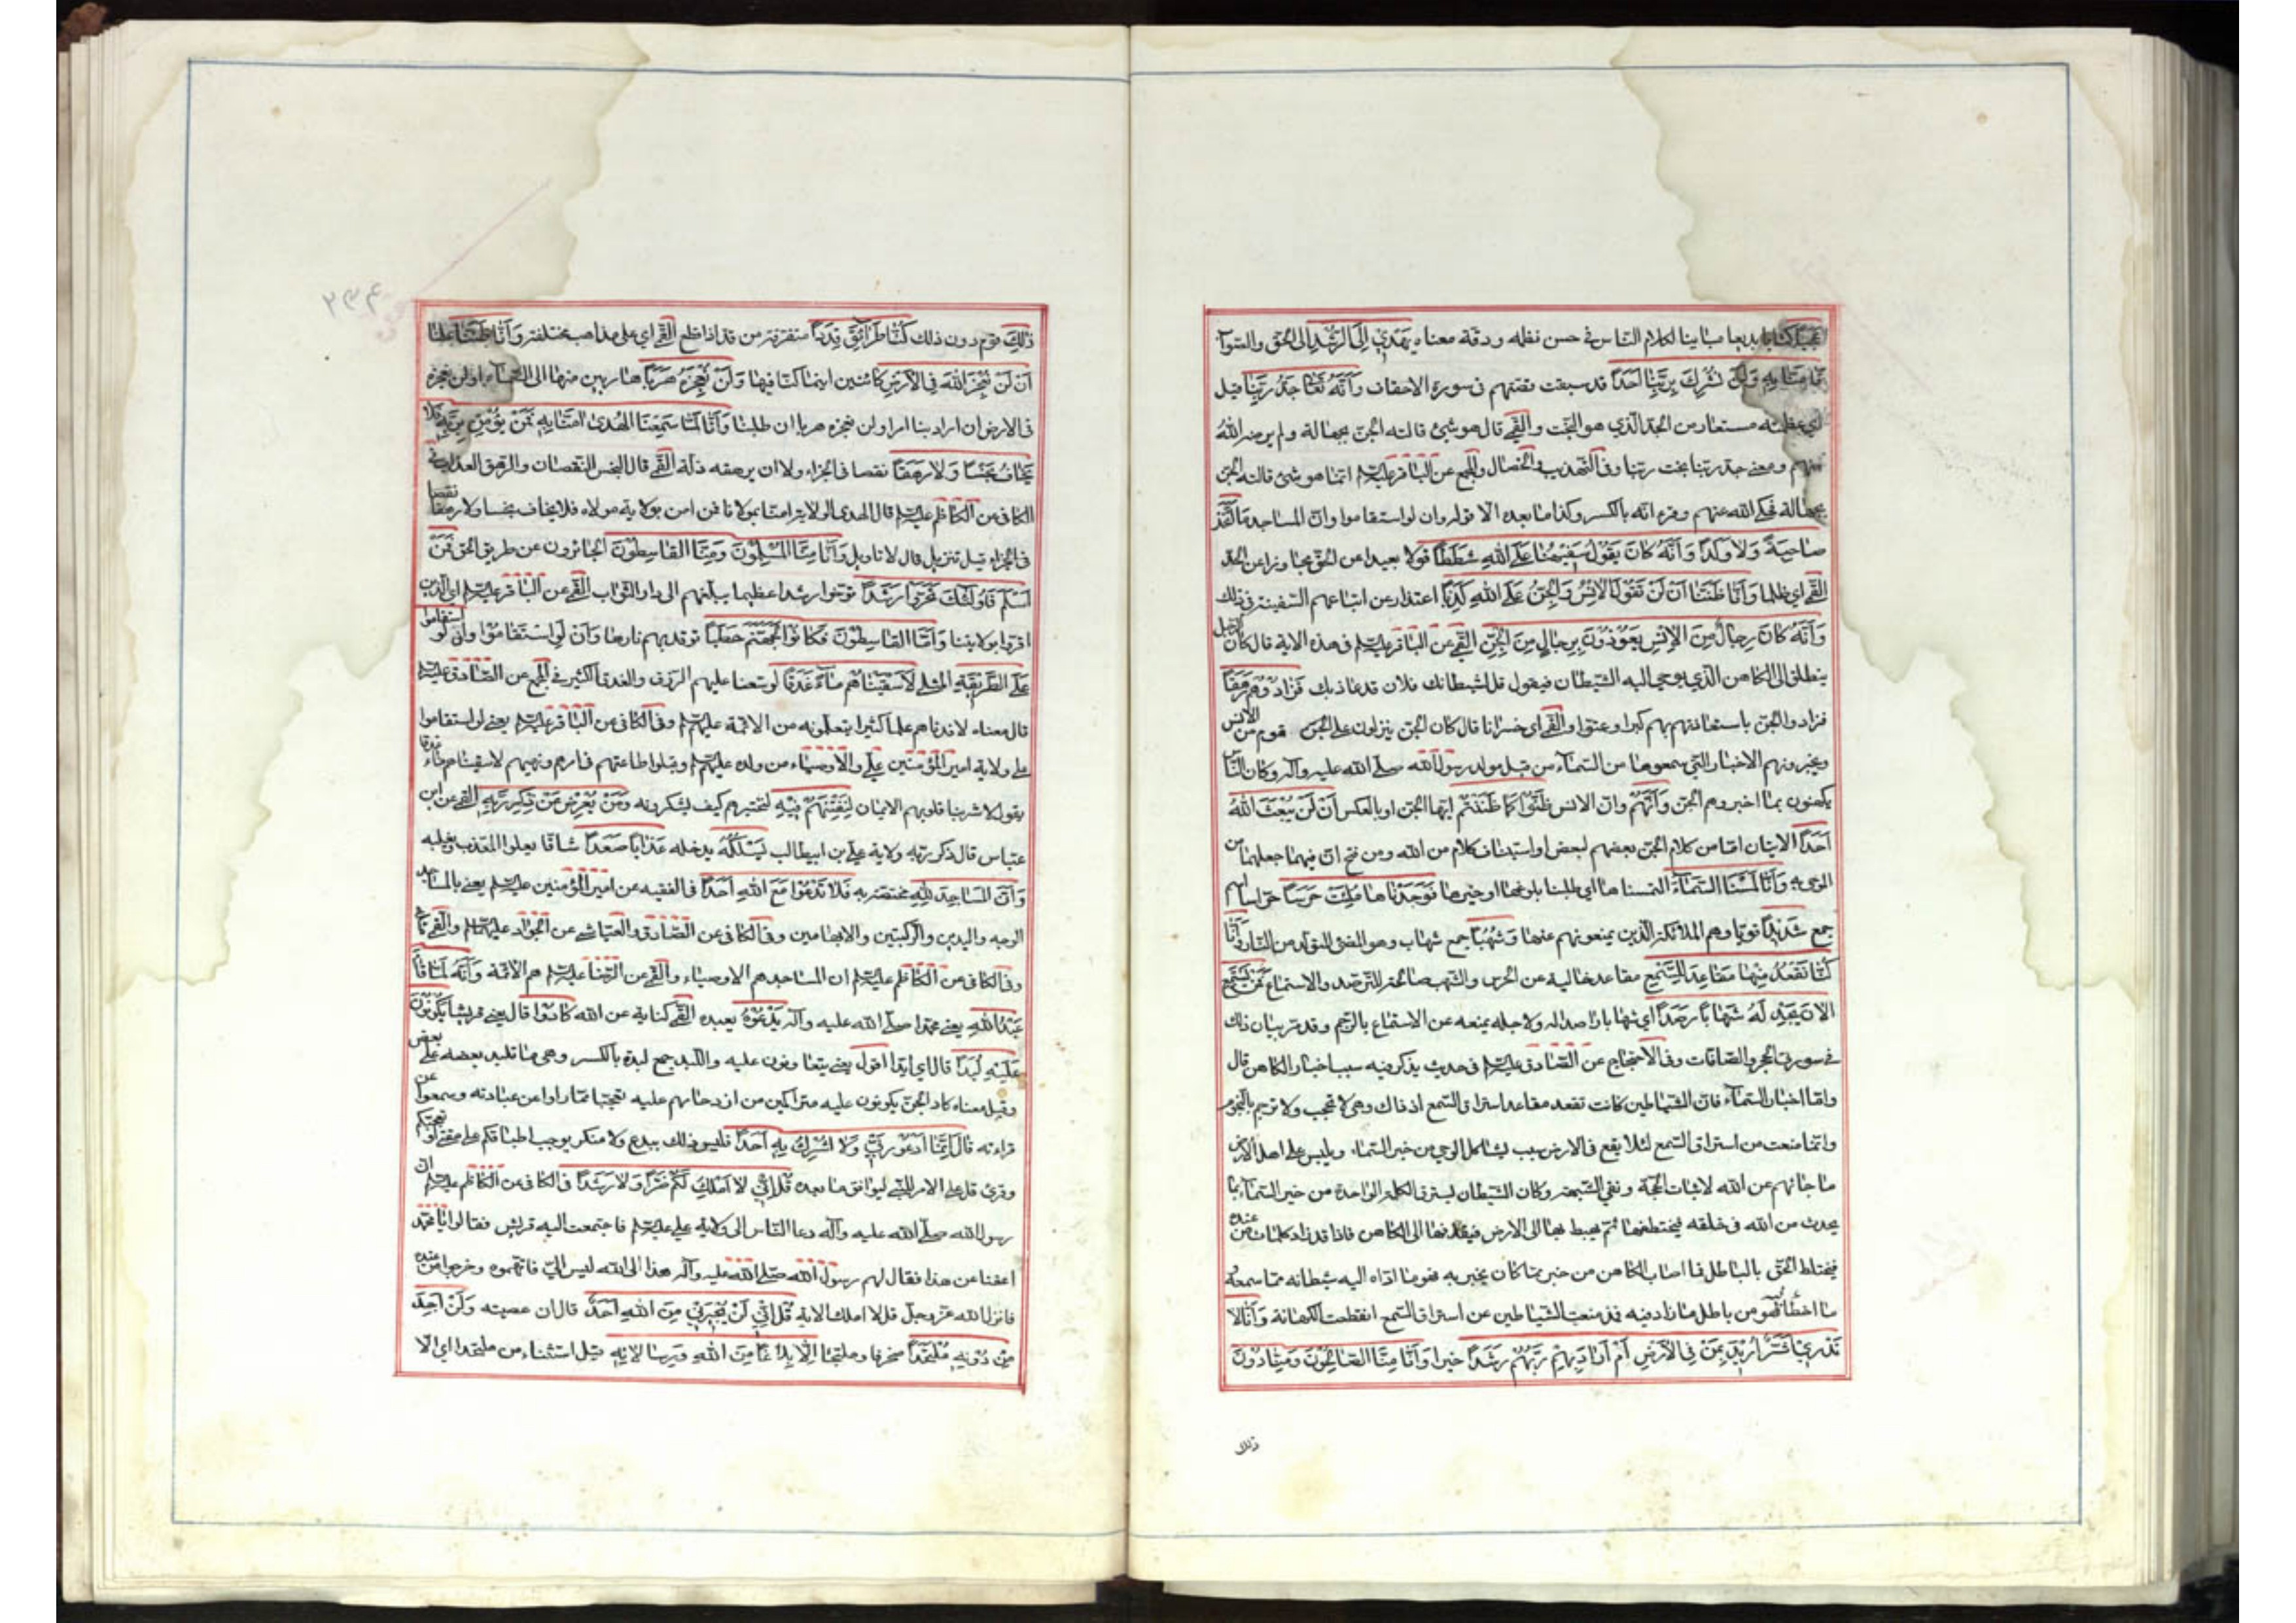 عَجَبًا كتابا بديعا مباينا لكلام الناس في حسن نظمه ودقة معناه يَهْدِي إِلَى الرُّشْدِ الى الحق والصواب
فَآمَنَّا بِهِ وَلَنْ نُشْرِكَ بِرَبِّنَا أَحَدًا قد سبقت قصتهم في سورة الاحقاف وَأَنَّهُ تَعَالَى جَدُّ رَبِّنَا قيل
اي عظمته مستعار من الجد الذي هو البخت والقمي قال هو شئ قالته الجن بجهالة ولم يرضه الله
منهم ومعنى جد ربنا بخت ربنا وفي التهذيب والخصال والمجمع عن الباقر عليه السلام انما هو شئ قالته الجن
بجهالة فحكى الله عنهم وقرء انه بالكسر وكذا ما بعده الا قوله وان لو استقاموا وان المساجد مَا اتَّخَذَ
صَاحِبَةً وَلَا وَلَدًا وَأَنَّهُ كَانَ يَقُولُ سَفِيهُنَا عَلَى اللهِ شَطَطًا قولا بعيدا عن الحق مجاوزا عن الحد
القمي اي ظلما وَأَنَّا ظَنَنَّا أَنْ لَنْ تَقُولَ الْإِنْسُ وَالْجِنُّ عَلَى اللهِ كَذِبًا اعتذار عن اتباعهم السفيه في ذلك
وَأَنَّهُ كَانَ رِجَالٌ مِنَ الْإِنْسِ يَعُوذُونَ بِرِجَالٍ مِنَ الْجِنِّ القمي عن الباقر عليه السلام في هذه الاية قال كان الرجل
ينطلق الى الكاهن الذي يوحي اليه الشيطان فيقول قل لشيطانك فلان قد عاذ بك فَزَادُوهُمْ رَهَقًا
فزادوا الجن باستعاذتهم بهم كبرا وعتوا والقمي اي خسرانا قال كان الجن ينزلون على الجن قوم من الانس
ويخبرونهم الاخبار التي سمعوها من السماء من قبل مولد رسول الله صلى الله عليه وآله وكان الناس
يكهنون بما اخبروهم الجن وَأَنَّهُمْ وان الانس ظَنُّوا كَمَا ظَنَنْتُمْ ايها الجن او بالعكس أَنْ لَنْ يَبْعَثَ اللهُ
أَحَدًا الايتان اما من كلام الجن بعضهم لبعض او استيناف كلام من الله ومن فتح ان فيهما جعلهما من
الموحى به وَأَنَّا لَمَسْنَا السَّمَاءَ التمسناها اي طلبنا بلوغها او خبرها فَوَجَدْنَاهَا مُلِئَتْ حَرَسًا حراسا اسم
جمع شَدِيدًا قويا وهم الملائكة الذين يمنعونهم عنها وَشُهُبًا جمع شهاب وهو المضئ المتولد من النار وَأَنَّا
كُنَّا نَقْعُدُ مِنْهَا مَقَاعِدَ لِلسَّمْعِ مقاعد خالية عن الحرس والشهب صالحة للترصد والاستماع فَمَنْ يَسْتَمِعِ
الْآنَ يَجِدْ لَهُ شِهَابًا رَصَدًا اي شهابا راصدا له ولاجله يمنعه عن الاستماع بالرجم وقد مر بيان ذلك
في سورتي الحجر والصافات وفي الاحتجاج عن الصادق عليه السلام في حديث يذكر فيه سبب اخبار الكاهن قال
واما اخبار السماء فان الشياطين كانت تقعد مقاعد استراق السمع اذ ذاك وهي لا تحجب ولا ترجم بالنجوم
وانما منعت من استراق السمع لئلا يقع في الارض سبب يشاكل الوحي من خبر السماء ويلبس على اهل الارض
ما جائهم عن الله لاثبات الحجة ونفي الشبهة وكان الشيطان ليسترق الكلمة الواحدة من خبر السماء بما
يحدث من الله في خلقه فيختطفها ثم يهبط بها الى الارض فيقذفها الى الكاهن فاذا قد زاد كلمات من عنده
فيختلط الحق بالباطل فما اصاب الكاهن من خبر مما كان يخبر به فهو ما اداه اليه شيطانه مما سمعه
ما اخطأ فهو من باطل ما زاد فيه فمذ منعت الشياطين عن استراق السمع انقطعت الكهانة وَأَنَّا لَا
نَدْرِي أَشَرٌّ أُرِيدَ بِمَنْ فِي الْأَرْضِ أَمْ أَرَادَ بِهِمْ رَبُّهُمْ رَشَدًا خيرا وَأَنَّا مِنَّا الصَّالِحُونَ وَمِنَّا دُونَ
ذلك
۲۳۴
ذَلِكَ قوم دون ذلك كُنَّا طَرَائِقَ قِدَدًا متفرقة من قد اذا قطع القمي اي على مذاهب مختلفة وَأَنَّا ظَنَنَّا علمنا
أَنْ لَنْ نُعْجِزَ اللهَ فِي الْأَرْضِ كائنين اينما كنا فيها وَلَنْ نُعْجِزَهُ هَرَبًا هاربين منها الى السماء او لن نعجزه
في الارض ان اراد بنا امرا ولن نعجزه هربا ان طلبنا وَأَنَّا لَمَّا سَمِعْنَا الْهُدَى آمَنَّا بِهِ فَمَنْ يُؤْمِنْ بِرَبِّهِ فَلَا
يَخَافُ بَخْسًا وَلَا رَهَقًا نقصا في الجزاء ولا ان يرهقه ذلة القمي قال البخس النقصان والرهق العذاب في
الكافي عن الكاظم عليه السلام قال الهدى الولاية امنا بمولانا فمن امن بولاية مولاه فلا يخاف بخسا ولا رهقا نقصا
في الجزاء قيل تنزيل قال لا تاويل وَأَنَّا مِنَّا الْمُسْلِمُونَ وَمِنَّا الْقَاسِطُونَ الجائرون عن طريق الحق فَمَنْ
أَسْلَمَ فَأُولَئِكَ تَحَرَّوْا رَشَدًا توخوا رشدا عظيما يبلغهم الى دار الثواب القمي عن الباقر عليه السلام اي الذين
اقروا بولايتنا وَأَمَّا الْقَاسِطُونَ فَكَانُوا لِجَهَنَّمَ حَطَبًا توقد بهم نارها وَأَنْ لَوِ اسْتَقَامُوا وان لو استقاموا
عَلَى الطَّرِيقَةِ المثلى لَأَسْقَيْنَاهُمْ مَاءً غَدَقًا لوسعنا عليهم الرزق والغدق الكثير في المجمع عن الصادق عليه السلام
قال معناه لافدناهم علما كثيرا يتعلمونه من الائمة عليهم السلام وفي الكافي عن الباقر عليه السلام يعني لو استقاموا
على ولاية امير المؤمنين علي والاوصياء من ولده عليهم السلام وقبلوا طاعتهم في امرهم ونهيهم لاسقيناهم ماء غدقا
يقول لاشربنا قلوبهم الايمان لِنَفْتِنَهُمْ فِيهِ لنختبرهم كيف يشكرونه وَمَنْ يُعْرِضْ عَنْ ذِكْرِ رَبِّهِ القمي عن ابن
عباس قال ذكر ربه ولاية علي بن ابيطالب يَسْلُكْهُ يدخله عَذَابًا صَعَدًا شاقا يعلوا المعذب ويغلبه
وَأَنَّ الْمَسَاجِدَ لِلَّهِ مختصة به فَلَا تَدْعُوا مَعَ اللهِ أَحَدًا في الفقيه عن امير المؤمنين عليه السلام يعني بالمساجد
الوجه واليدين والركبتين والابهامين وفي الكافي عن الصادق والعياشي عن الجواد عليهما السلام والقمي ما في
وفي الكافي عن الكاظم عليه السلام ان المساجد هم الاوصياء والقمي عن الرضا عليه السلام هم الائمة وَأَنَّهُ لَمَّا قَامَ
عَبْدُ اللهِ يعني محمدا صلى الله عليه وآله يَدْعُوهُ يعبده القمي كناية عن الله كَادُوا قال يعني قريشا يَكُونُونَ
عَلَيْهِ لِبَدًا قال اي ايدا اقول يعني يتعاونون عليه واللبد جمع لبدة بالكسر وهي ما تلبد بعضه على بعض
وقيل معناه كاد الجن يكونون عليه متراكمين من ازدحامهم عليه تعجبا مما راوا من عبادته وسمعوا من
قراءته قَالَ إِنَّمَا أَدْعُو رَبِّي وَلَا أُشْرِكُ بِهِ أَحَدًا فليس ذلك ببدع ولا منكر يوجب اطباقكم على مقتي او تعجبكم
وقرئ قل على الامر للنبي ليوافق ما بعده قُلْ إِنِّي لَا أَمْلِكُ لَكُمْ ضَرًّا وَلَا رَشَدًا في الكافي عن الكاظم عليه السلام ان
رسول الله صلى الله عليه وآله دعا الناس الى ولاية علي عليه السلام فاجتمعت اليه قريش فقالوا يا محمد
اعفنا عن هذا فقال لهم رسول الله صلى الله عليه وآله هذا الى الله ليس الي فاتهموه وخرجوا من عنده
فانزل الله عز وجل قل لا املك الاية قُلْ إِنِّي لَنْ يُجِيرَنِي مِنَ اللهِ أَحَدٌ قال ان عصيته وَلَنْ أَجِدَ
مِنْ دُونِهِ مُلْتَحَدًا منحرفا وملتجئا إِلَّا بَلَاغًا مِنَ اللهِ وَرِسَالَاتِهِ قيل استثناء من ملتحدا اي الا